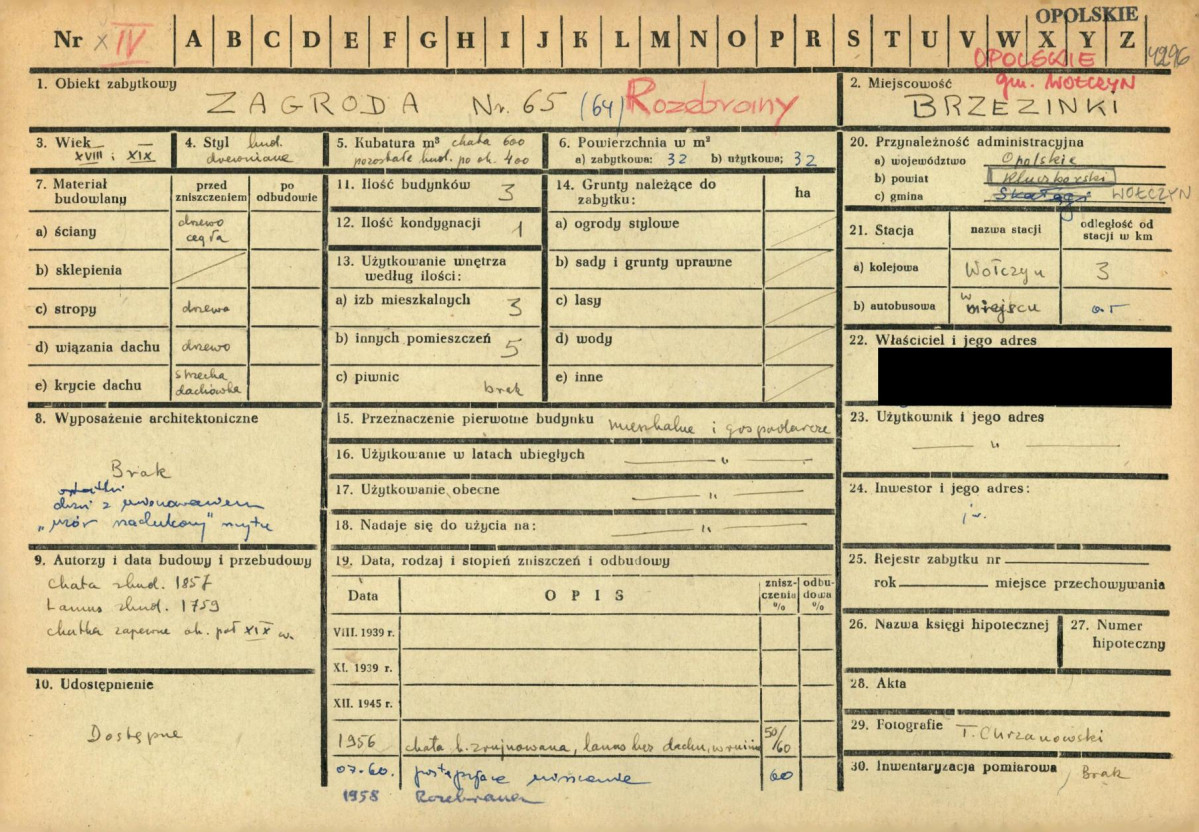 OPOLSKIE
Nr x IV A B C D E F G H I J K L M N O P R S T U V W X Y Z 4296
OPOLSKIE
gm. WOŁCZYN
1. Obiekt zabytkowy
ZAGRODA Nr. 65 (64) Rozebrany
2. Miejscowość
BRZEZINKI
3. Wiek
XVIII i XIX
4. Styl bud.
drewniane
5. Kubatura m³ chata 600
pozostałe bud. po ok. 400
6. Powierzchnia w m²
a) zabytkowa: 32 b) użytkowa; 32
7. Materiał budowlany
przed zniszczeniem
po odbudowie
a) ściany drzewo
cegła
b) sklepienia
c) stropy drzewo
d) wiązania dachu drzewo
e) krycie dachu strzecha
dachówka
8. Wyposażenie architektoniczne
Brak
9. Autorzy i data budowy i przebudowy
chata zbud. 1857
Lamus zbud. 1759
chatka zapewne ok. poł XIX w.
10. Udostępnienie
Dostępne
11. Ilość budynków 3
12. Ilość kondygnacji 1
13. Użytkowanie wnętrza
według ilości:
a) izb mieszkalnych 3
b) innych pomieszczeń 5
c) piwnic brak
14. Grunty należące do
zabytku:
ha
a) ogrody stylowe
b) sady i grunty uprawne
c) lasy
d) wody
e) inne
15. Przeznaczenie pierwotne budynku mieszkalne i gospodarcze
16. Użytkowanie w latach ubiegłych — „ —
17. Użytkowanie obecne — „ —
18. Nadaje się do użycia na: — „ —
19. Data, rodzaj i stopień zniszczeń i odbudowy
Data OPIS znisz-
czenia
% odbu-
dowa
%
VIII. 1939 r.
XI. 1939 r.
XII. 1945 r.
1956 chata b. zrujnowana, lamus bez dachu, w ruinie 50/60
07.60. postępujące niszczenie 60
1958 Rozebrana
20. Przynależność administracyjna
a) województwo Opolskie
b) powiat Kluczborski
c) gmina Skałągi WOŁCZYN
21. Stacja
nazwa stacji
odległość od
stacji w km
a) kolejowa Wołczyn 3
b) autobusowa w miejscu 0.5
22. Właściciel i jego adres
23. Użytkownik i jego adres
— „ —
24. Inwestor i jego adres:
25. Rejestr zabytku nr
rok miejsce przechowywania
26. Nazwa księgi hipotecznej
27. Numer
hipoteczny
28. Akta
29. Fotografie T. Chrzanowski
30. Inwentaryzacja pomiarowa Brak